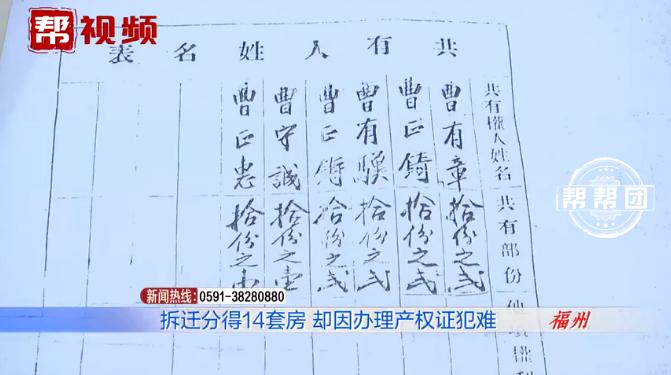 帮视频
共有人姓名表
共有權人姓名 共有部份
曹有章 拾份之弍
曹正錡 拾份之弍
曹有騤 拾份之弍
曹正 拾份之弍
曹守誠 拾份之壹
曹正惠 拾份之壹
帮帮团
新闻热线: 0591-38280880
拆迁分得14套房 却因办理产权证犯难
福州